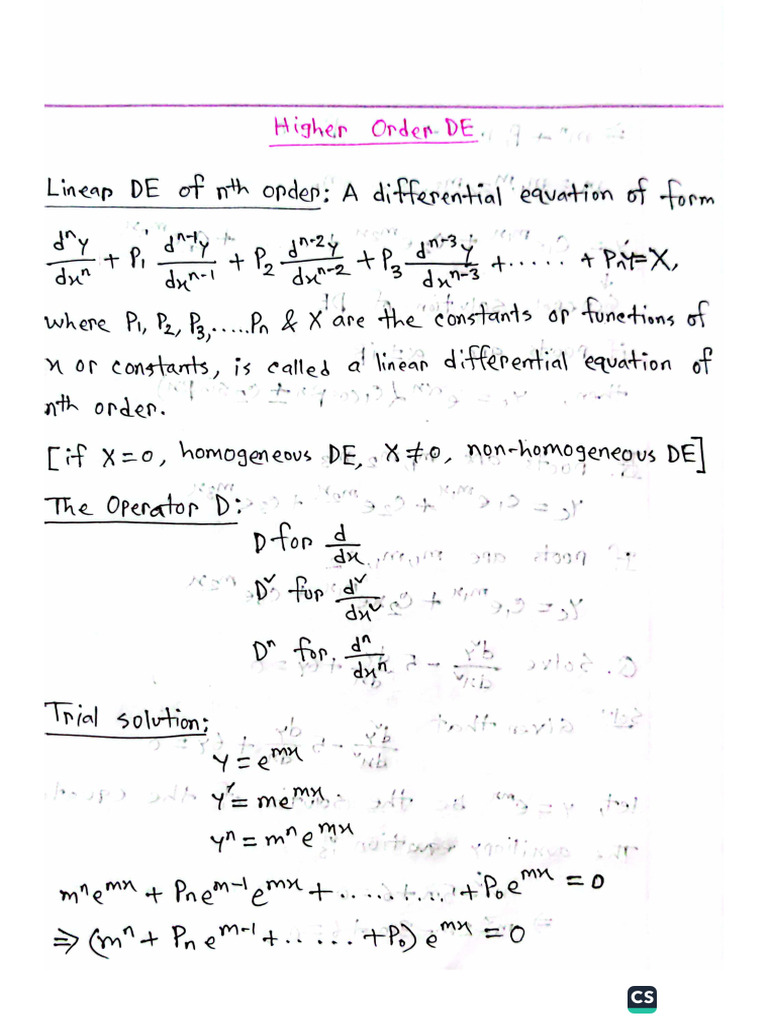 Higher Order DE
Linear DE of nth order: A differential equation of form
dⁿy/dxⁿ + P₁ dⁿ⁻¹y/dxⁿ⁻¹ + P₂ dⁿ⁻²y/dxⁿ⁻² + P₃ dⁿ⁻³y/dxⁿ⁻³ + ...... + Pₙy = X,
where P₁, P₂, P₃, .....Pn & X are the constants or functions of
x or constants, is called a linear differential equation of
nth order.
[if X=0, homogeneous DE, X≠0, non-homogeneous DE]
The Operator D:
D for d/dx
D² for d²/dx²
Dⁿ for. dⁿ/dxⁿ
Trial solution:
y = eᵐˣ
y' = meᵐˣ
yⁿ = mⁿeᵐˣ
mⁿeᵐˣ + Pₙeᵐ⁻¹eᵐˣ + ........ + P₀eᵐˣ = 0
⇒ (mⁿ + Pₙ eᵐ⁻¹ + ...... + P₀) eᵐˣ = 0
CS